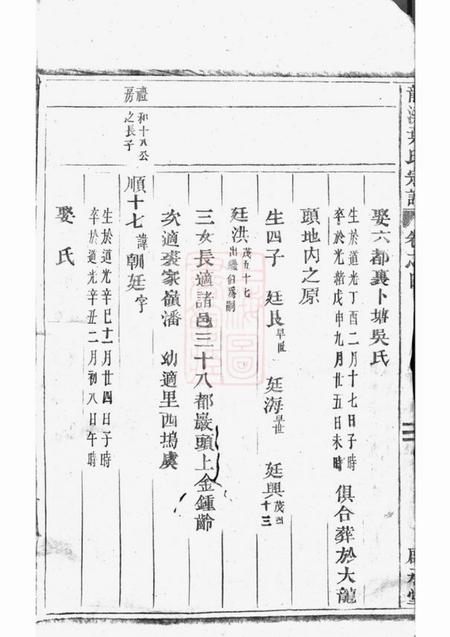 氏宗譜
卷之四
娶六都裏卜塘吳氏
生於道光丁酉二月十七日子時
卒於光緒戊申九月廿五日未時
俱合葬於大龍
頭地內之原
生四子 廷良早世 廷海早世 廷興茂 十三
廷洪茂五十七 出繼伯爲嗣
三女長適諸邑三十八都巖頭上金鍾齡
次適裘家嶺潘 幼適里西塢虞
禮房
和十八公之長子
順十七諱朝廷字
生於道光辛巳十一月廿四日子時
卒於道光辛丑二月初八日午時
娶 氏